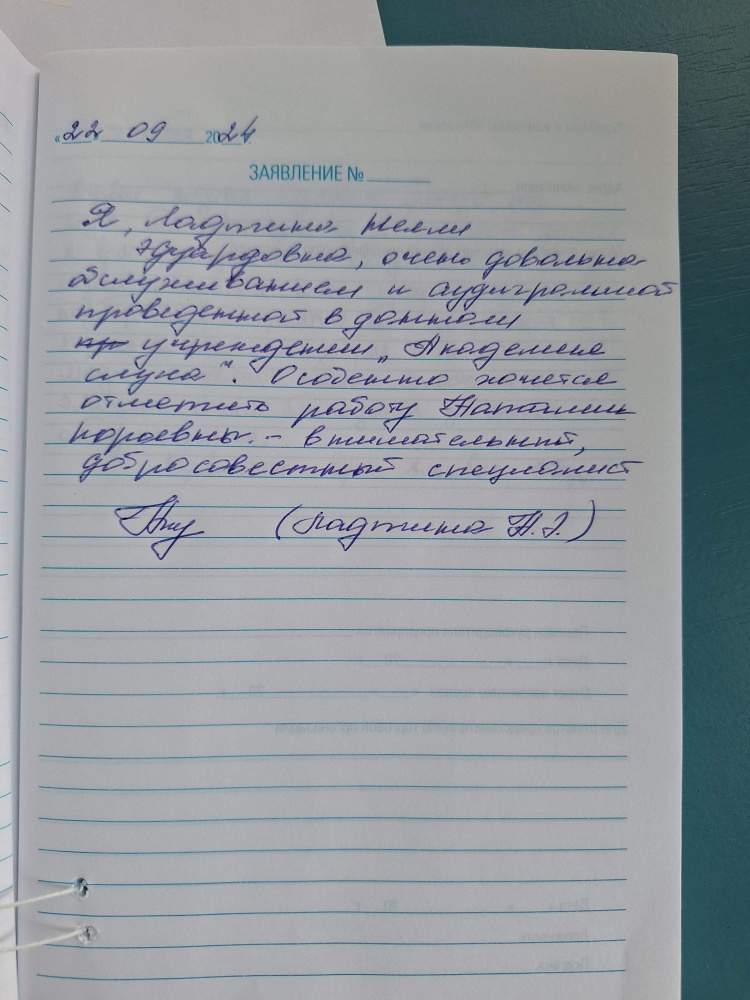 «22» 09 2024
ЗАЯВЛЕНИЕ №
Я, Ладтина Нелли
Эдуардовна, очень довольна
обслуживанием и аудиграммой
проведенной в данном
учреждении „Академия
слуха“. Особенно хочется
отметить работу Наталии
- внимательный,
добросовестный специалист
(Ладтина Н.Э.)